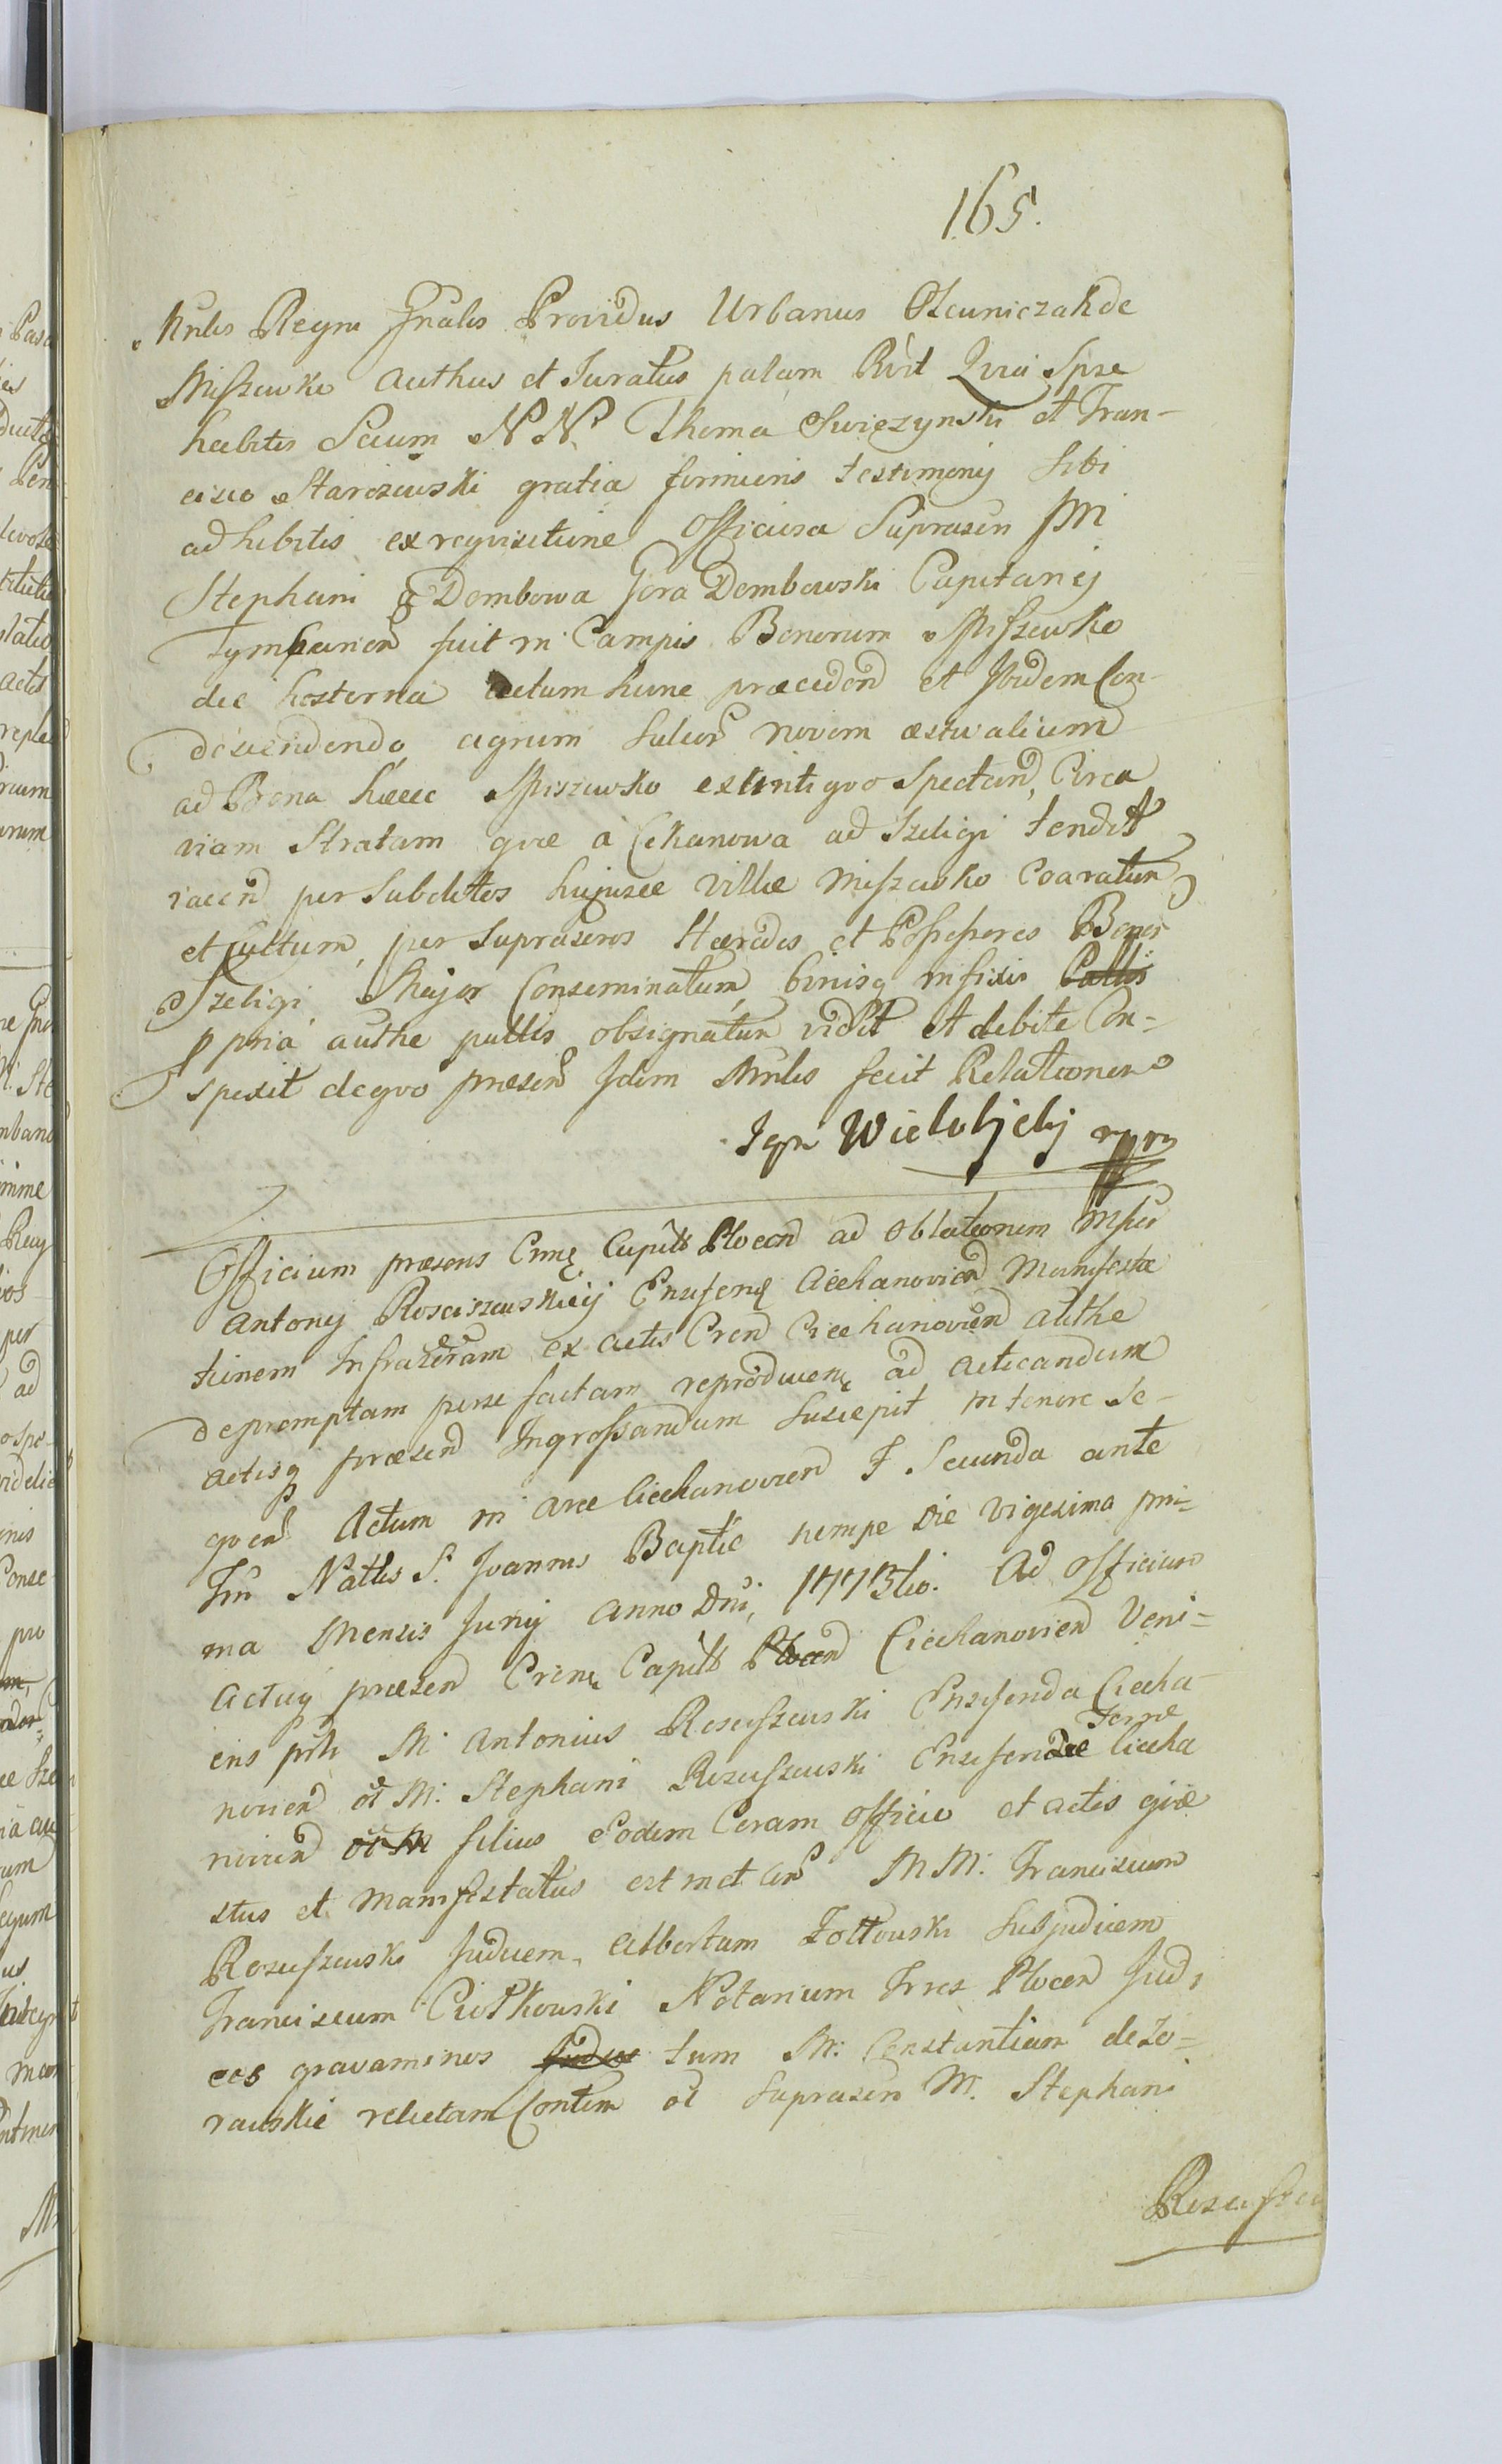 165.
Mnlis Regni Gnalis Providus Urbanus Olcuniczak de
Miszewko authus et Juratus palam Rvit Quia Ipse
habitis Secum NN. Thoma Swięzynski et Fran-
cisco Starozewski gratia firmioris testimonij sibi
adhibitis ex requisitione Officiosa Suprascri M
Stephani a Dembowa Gora Dembowski Capitanej
Tymbarien fuit in Campis Bonorum Miszewko
die hesterna actum hunc præceden et Ibidem Con-
descendendo agrum Sulcor novem æstivalium
ad Bona hæec Miszewko ex antiquo Spectan, Circa
viam Stratam quæ a Cekanowa ad Szeligi tendit
iacen per Subditos hujusce Villæ Miszewko Coaratum
et Cultum, per Supraseros Hæredes et Possessores Bonor
Szeligi Major Conseminatum, binisq infixis Pallis
ppria authe pallis obsignatum vidit et debite Con-
spexit de quo præsen Idem Mnlis fecit Relationem
Ign Wielobjcki mpr
Officium præsens Crinę Capitł Plocen ad oblationem Mfici
Antonij Rosciszewskiej Ensiferi Ciechanovien Manifesta
tionem Infrascram ex actis Cren Ciechanovien authe
depromptam perse factam reproducen ad acticandum
actisq præsen Ingrossandum Suscepit in tenore Se-
quen Actum in arce Ciechanovien F Secunda ante
Fm Natlis S. Joannis Baptæ nempe Die vigesima pri-
ma Mensis Junij Anno Dni, 1773tio. Ad Officium
actuq præsen Crinę Capitł Plocen Ciechanovien Veni-
ens prlr M Antonius Rosciszewski Ensiferida Ciecha-
novien ol M: Stephani Rosciszewski Ensiferidæ Terræ Ciecha
novien ol M filius eodem Coram Officio et actis quæ
stus et Manifestatus est in et con MM: Franciscum
Rosciszewski Judicem, Albertum Zołtowski Subjudicem
Franciscum Ciołkowski Notarium Trres Plocen Jud,
ces gravamines Judice tum M: Constantiam de Zo-
rawskie relictam Contem ol Suprascri M. Stephani
Rosciszew